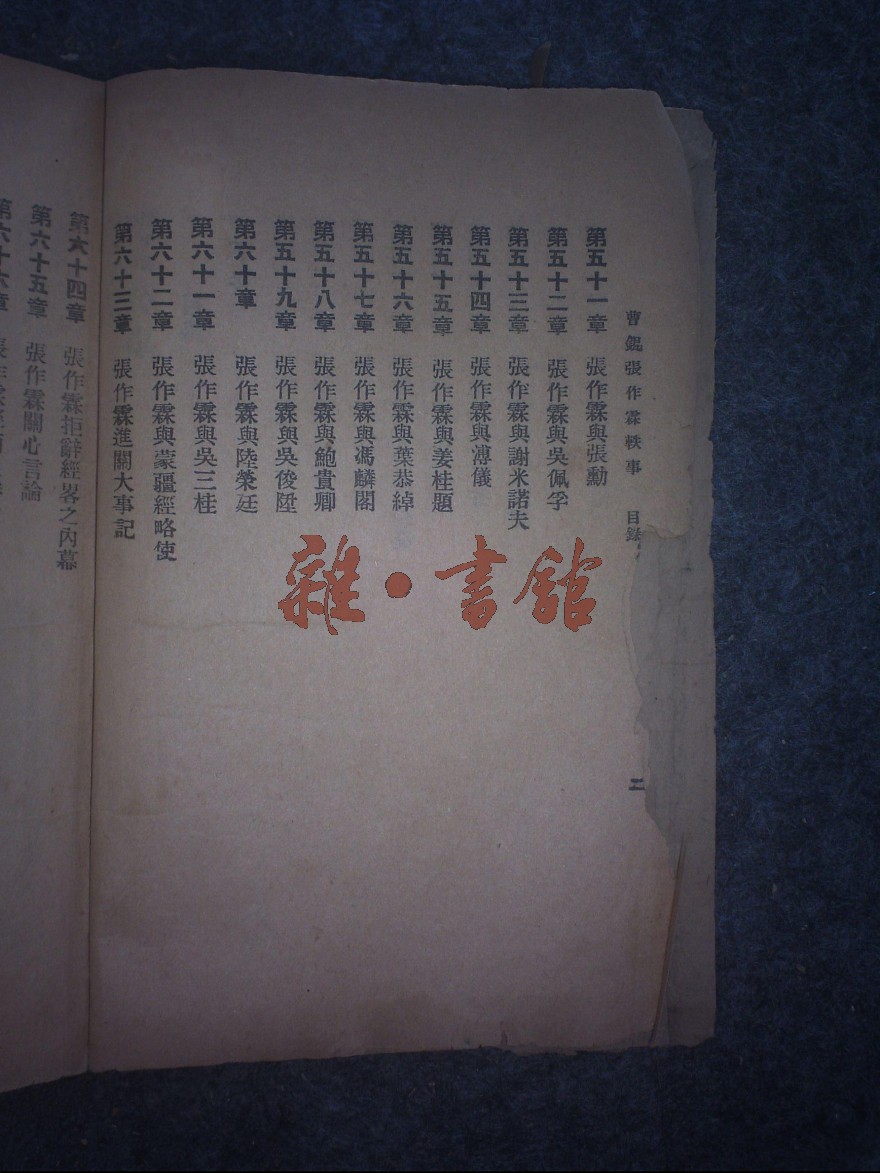 曹錕張作霖軼事　目錄
二
第五十一章　張作霖與張勳
第五十二章　張作霖與吳佩孚
第五十三章　張作霖與謝米諾夫
第五十四章　張作霖與溥儀
第五十五章　張作霖與姜桂題
第五十六章　張作霖與葉恭綽
第五十七章　張作霖與馮麟閣
第五十八章　張作霖與鮑貴卿
第五十九章　張作霖與吳俊陞
第六十章　張作霖與陸榮廷
第六十一章　張作霖與吳三桂
第六十二章　張作霖與蒙疆經略使
第六十三章　張作霖進關大事記
第六十四章　張作霖拒辭經畧之內幕
第六十五章　張作霖關心言論
第六十六章
雜·書館